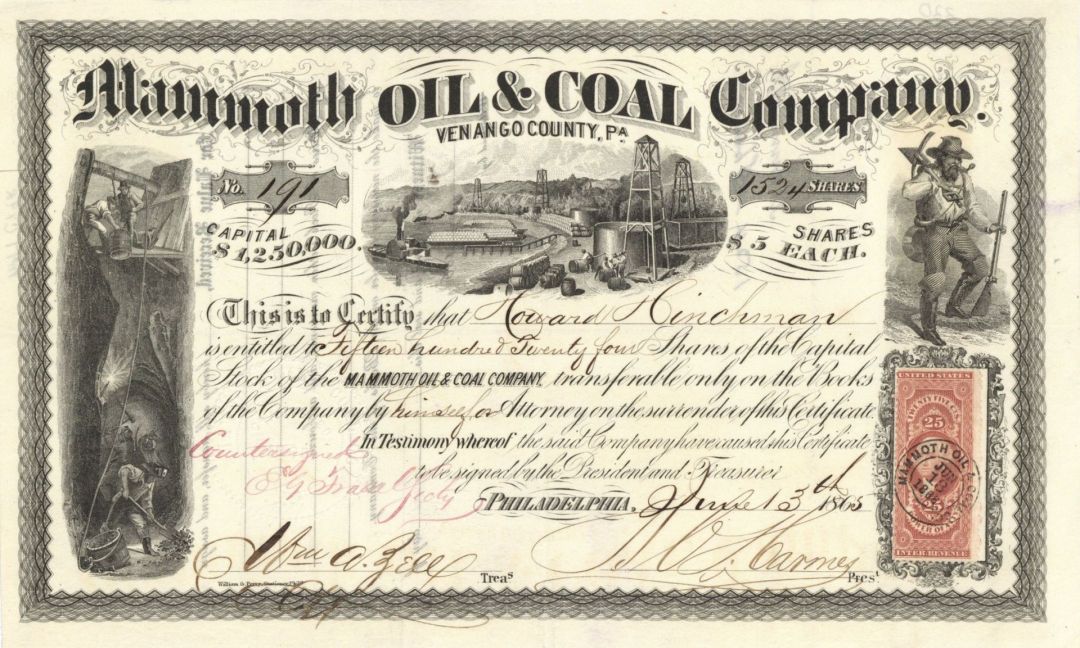 Mammoth OIL & COAL Company.
VENANGO COUNTY, PA
No. 191
1524 SHARES
CAPITAL $1,250,000.
SHARES $5 EACH.
This is to Certify that Howard Hinchman
is entitled to Fifteen hundred Twenty four Shares of the Capital
Stock of the MAMMOTH OIL & COAL COMPANY, transferable only on the Books
of the Company by himself or Attorney on the surrender of this Certificate
In Testimony whereof the said Company have caused this Certificate
to be signed by the President and Treasurer
Countersigned
PHILADELPHIA, June 13th 1865
Treas
Prest
William G. Perry, Stationer, Phila
UNITED STATES
TWENTY FIVE CTS.
25
MAMMOTH OIL &
INTER. REVENUE